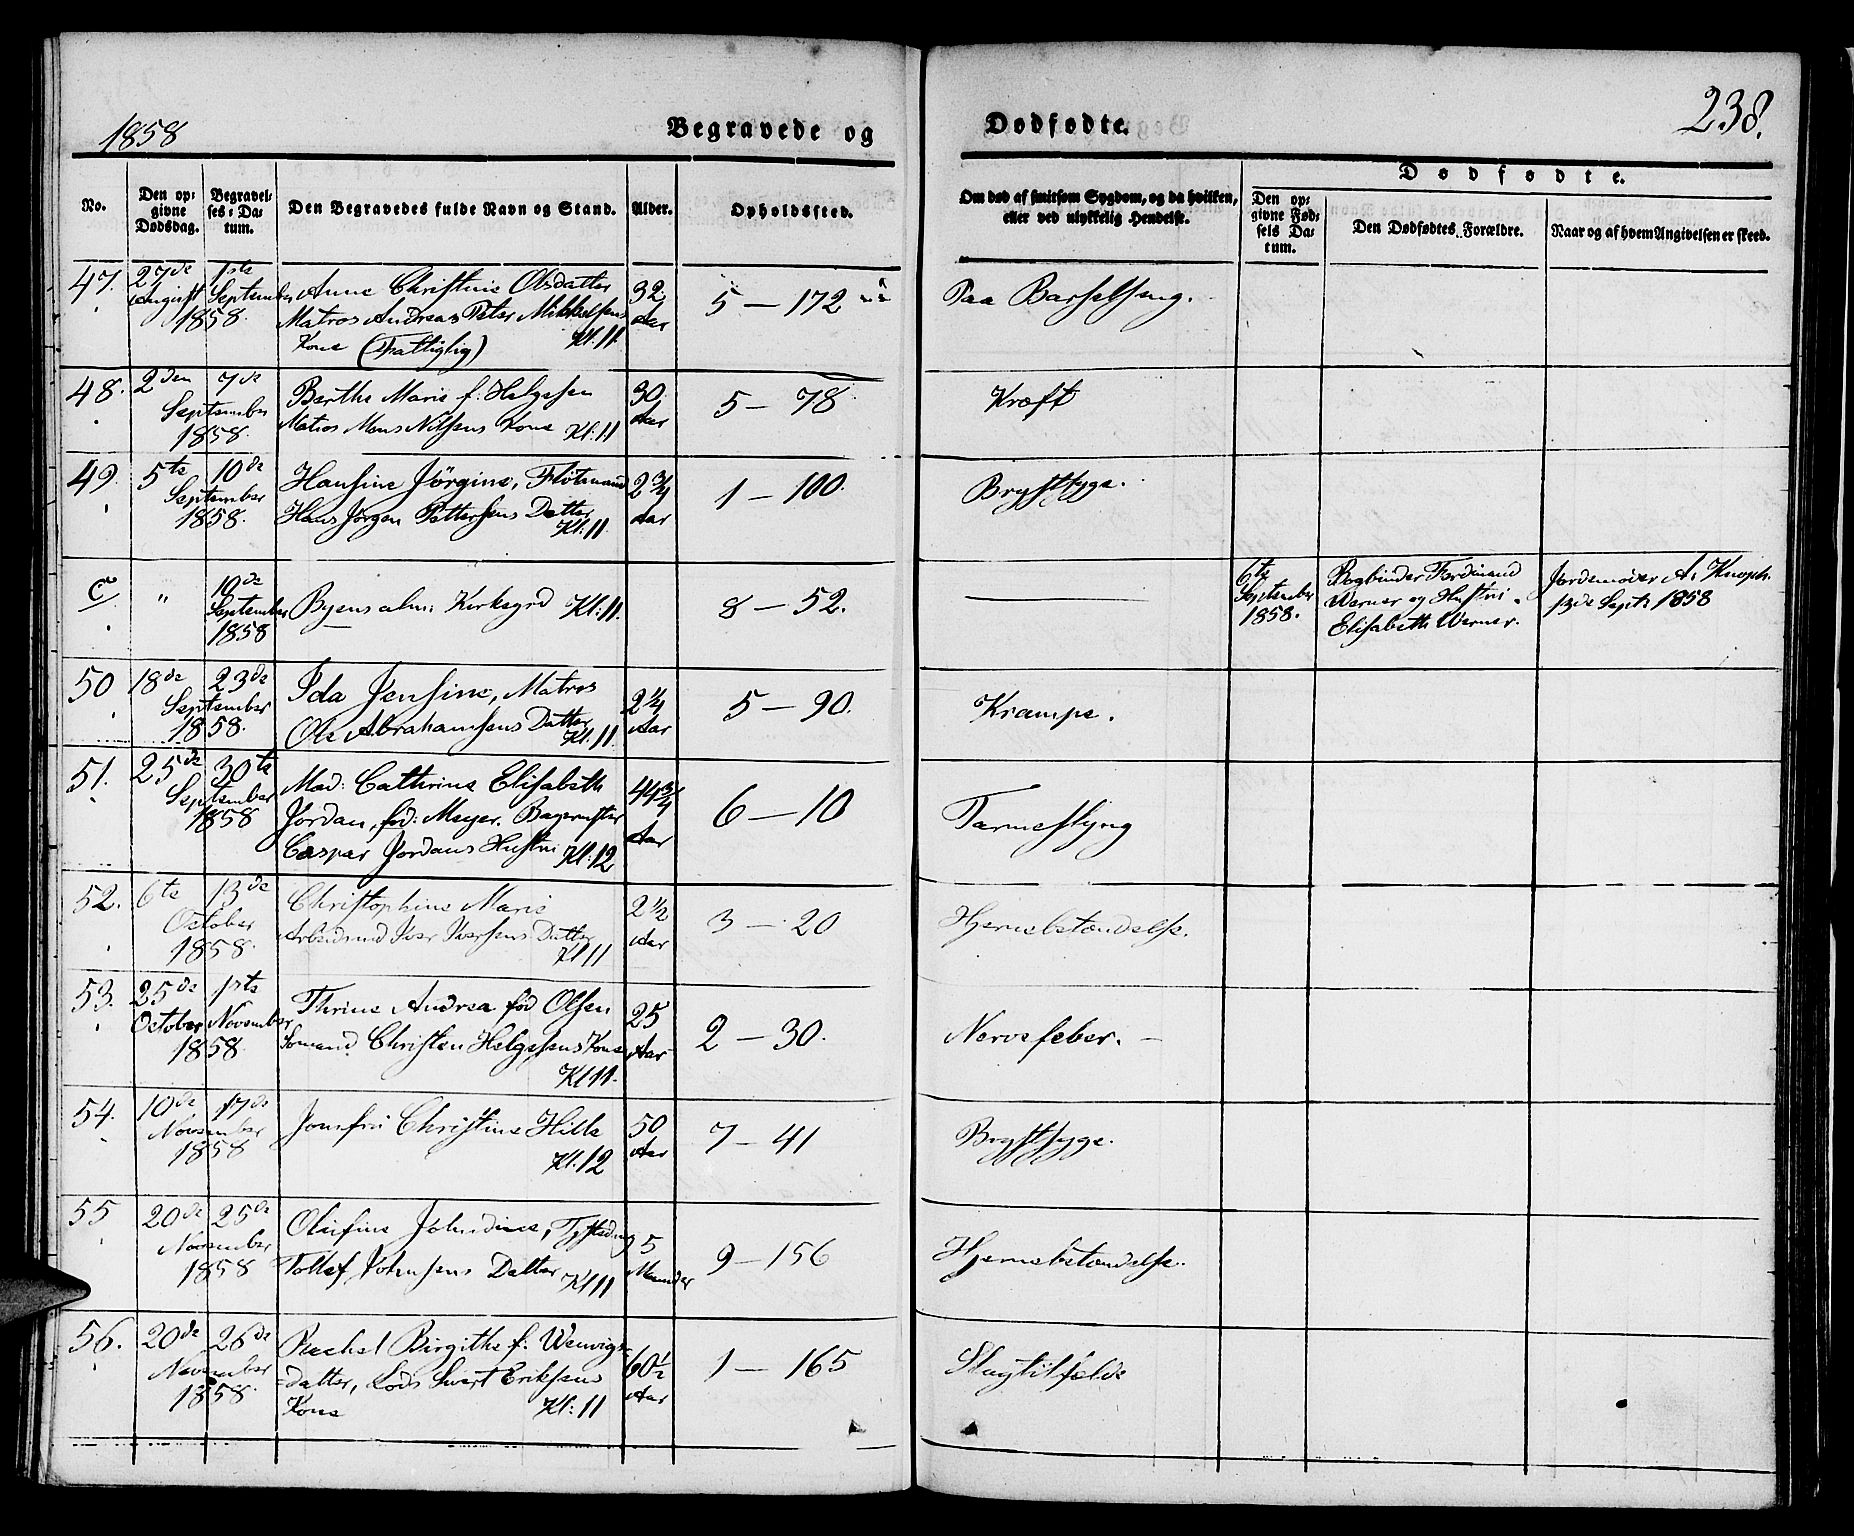 1858
Begravede og
Dødfødte.
238.
No.
Den op-
givne
Dødsdag.
Begravel-
ses-Da-
tum.
Den Begravedes fulde Navn og Stand.
Alder.
Opholdssted.
Om død af smitsom Sygdom, og da hvilken,
eller ved ulykkelig Hendelse.
Dødfødte.
Den op-
givne Fød-
sels Da-
tum.
Den Dødfødtes Forældre.
Naar og af hvem Angivelsen er skeed.
47. 27de August 1ste September 1858.
Anne Christine Olsdatter
Matros Andreas Peter Mikkelsens
Kone (Fattiglig) Kl: 11.
32 Aar
5 — 172
Paa Barselseng.
48. 2den 7de September 1858.
Berthe Marie f. Helgesen
Matros Mons Nilsens Kone Kl: 11
30 Aar
5 — 78.
Kræft
49. 5te 10de September 1858.
Hansine Jörgine, Flötmand
Hans Jørgen Pettersens Datter
Kl: 11.
2 3/4 Aar
1 — 100.
Brystsyge.
C. " 10de September 1858
Byens alm: Kirkegrd Kl: 11.
8 — 52.
6te September 1858.
Bogbinder Ferdinand
Werner og Hustru
Elisabeth Werner.
Jordemoder A. Knoph.
13de Sept: 1858
50 18de 23de September 1858.
Ida Jensine, Matros
Ole Abrahamsens Datter
Kl: 11.
2 1/4 Aar
5 — 90.
Krampe.
51. 25de 30te September 1858
Mad: Cathrine Elisabeth
Jordan, fød: Meyer. Bagermster
Caspar Jordans Hustru Kl: 12
44 3/4 Aar
6 — 10
Tarmeslyng
52. 6te 13de October 1858.
Christophine Marie
Arbeidsmd Iver Iversens Datter
Kl 11
2 1/2 Aar
3 — 20
Hjernebetændelse.
53. 25de October 1ste November 1858.
Thrine Andrea fød Olsen
Sømand Christen Helgesens Kone
Kl 11.
25 Aar
2 — 30.
Nervefeber. —
54. 10de 17de November 1858
Jomfru Christine Hille
Kl: 12
50 Aar
7 — 41
Brystsyge.
55 20de 25de November 1858
Olufine Johndine,
Tollef Johnsens Datter Kl 11
5 Maaneder
9 — 156
Hjernebetændelse.
56. 20de 26de November 1858.
Rachel Birgithe f. Wenvigs-
=datter, Lods Sivert Eriksens
Kone Kl: 11
60 1/2 Aar
1 — 165
Slagtilfælde